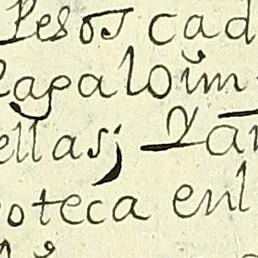 Pesos cad
apaloim
ellas; Y an
oteca enl